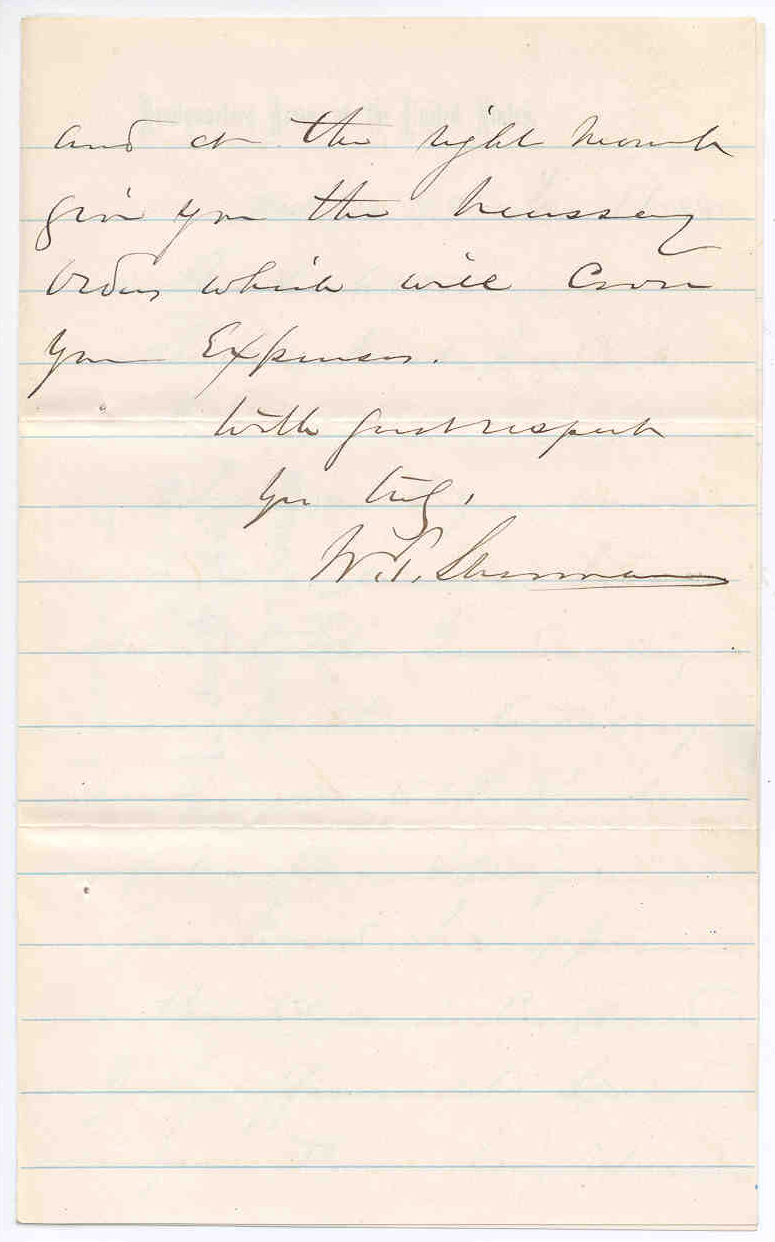 and at the right moment
give you the necessary
orders which will cover
your Expenses.
With great respect
Yrs truly,
W. T. Sherman